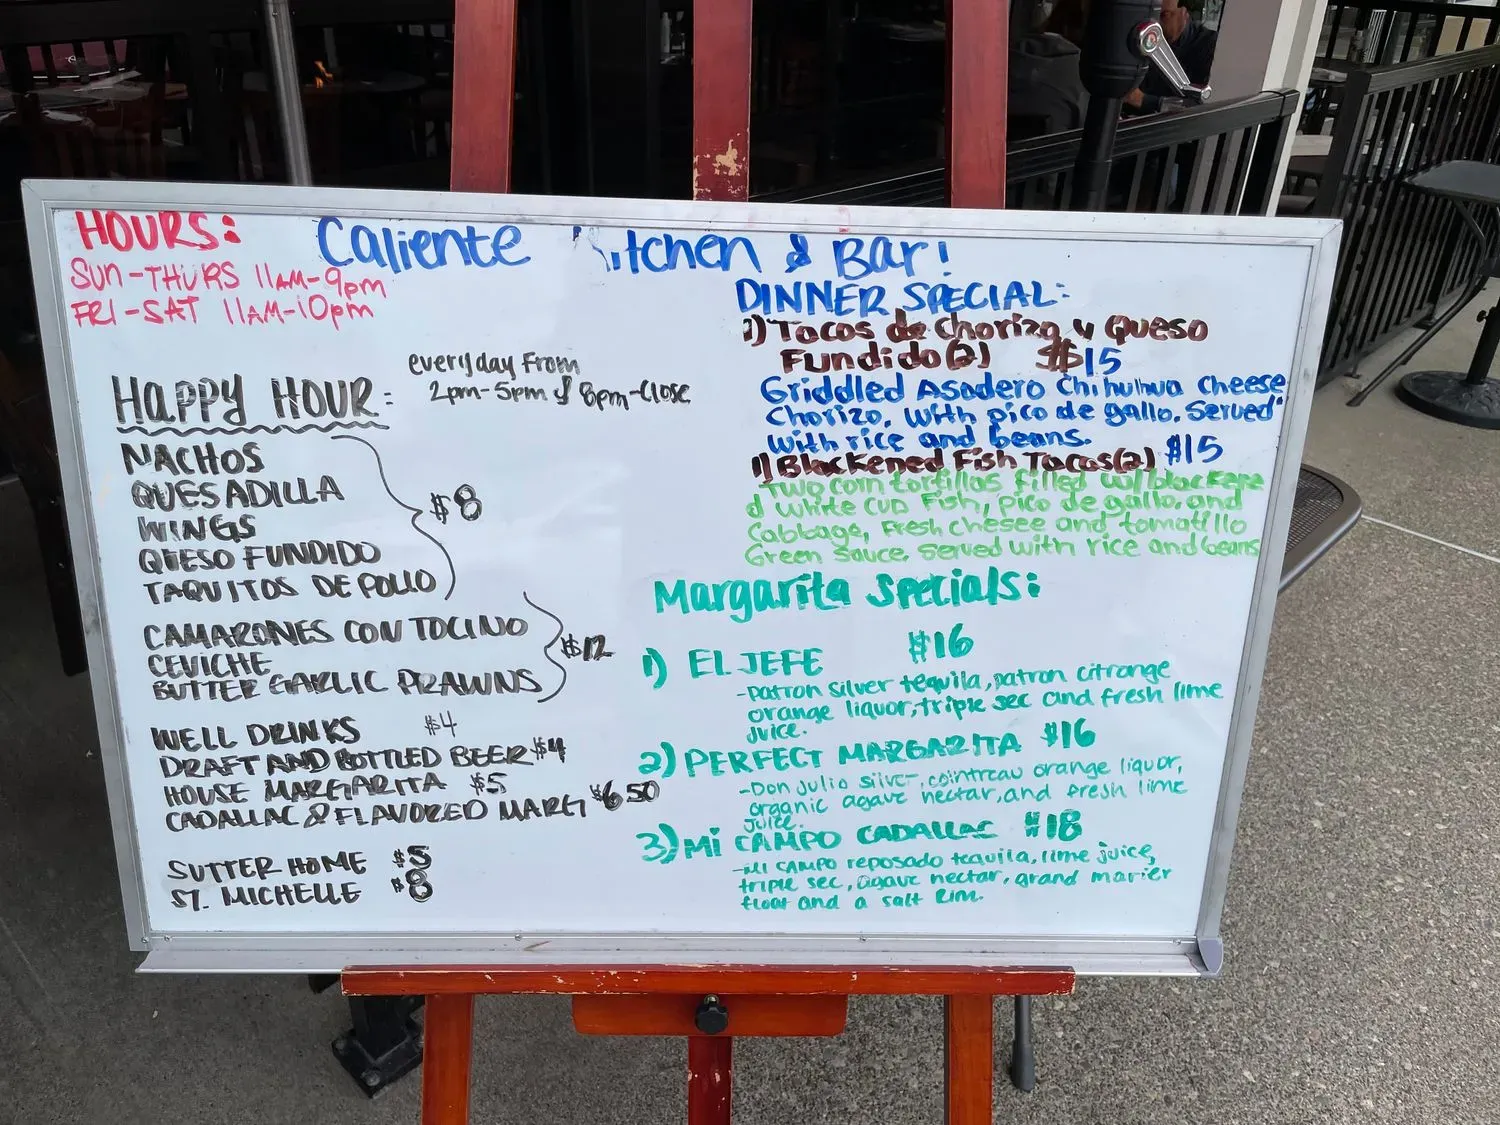 HOURS:
SUN-THURS 11AM-9pm
FRI-SAT 11AM-10pm
Caliente Kitchen & Bar!
HAPPY HOUR:
everyday From
2pm-5pm & 8pm-Close
NACHOS
QUESADILLA
WINGS
QUESO FUNDIDO
TAQUITOS DE POLLO
$8
CAMARONES CON TOCINO
CEVICHE
BUTTER GARLIC PRAWNS
$12
WELL DRINKS $4
DRAFT AND BOTTLED BEER $4
HOUSE MARGARITA $5
CADALLAC & FLAVORED MARG $6.50
SUTTER HOME $5
ST. MICHELLE $8
DINNER SPECIAL:
Tacos de Chorizo y Queso
Fundido(2) $15
Griddled Asadero Chihuhua Cheese
Chorizo, with pico de gallo. Served
with rice and beans.
1) Blackened Fish Tacos(2) $15
Two corn tortillas filled w/blackene
d White Cod Fish, pico de gallo, and
Cabbage, Fresh chesee and tomatillo
Green sauce. Served with rice and beans
Margarita Specials:
1) EL JEFE $16
-patron silver tequila, patron citronge
orange liquor, triple sec and fresh lime
juice.
2) PERFECT MARGARITA $16
-Don julio silver, cointreau orange liquor,
organic agave nectar, and fresh lime
juice.
3) Mi CAMPO CADALLAC $18
-Mi CAMPO reposado tequila, lime juice,
triple sec, agave nectar, grand marier
float and a salt Rim.